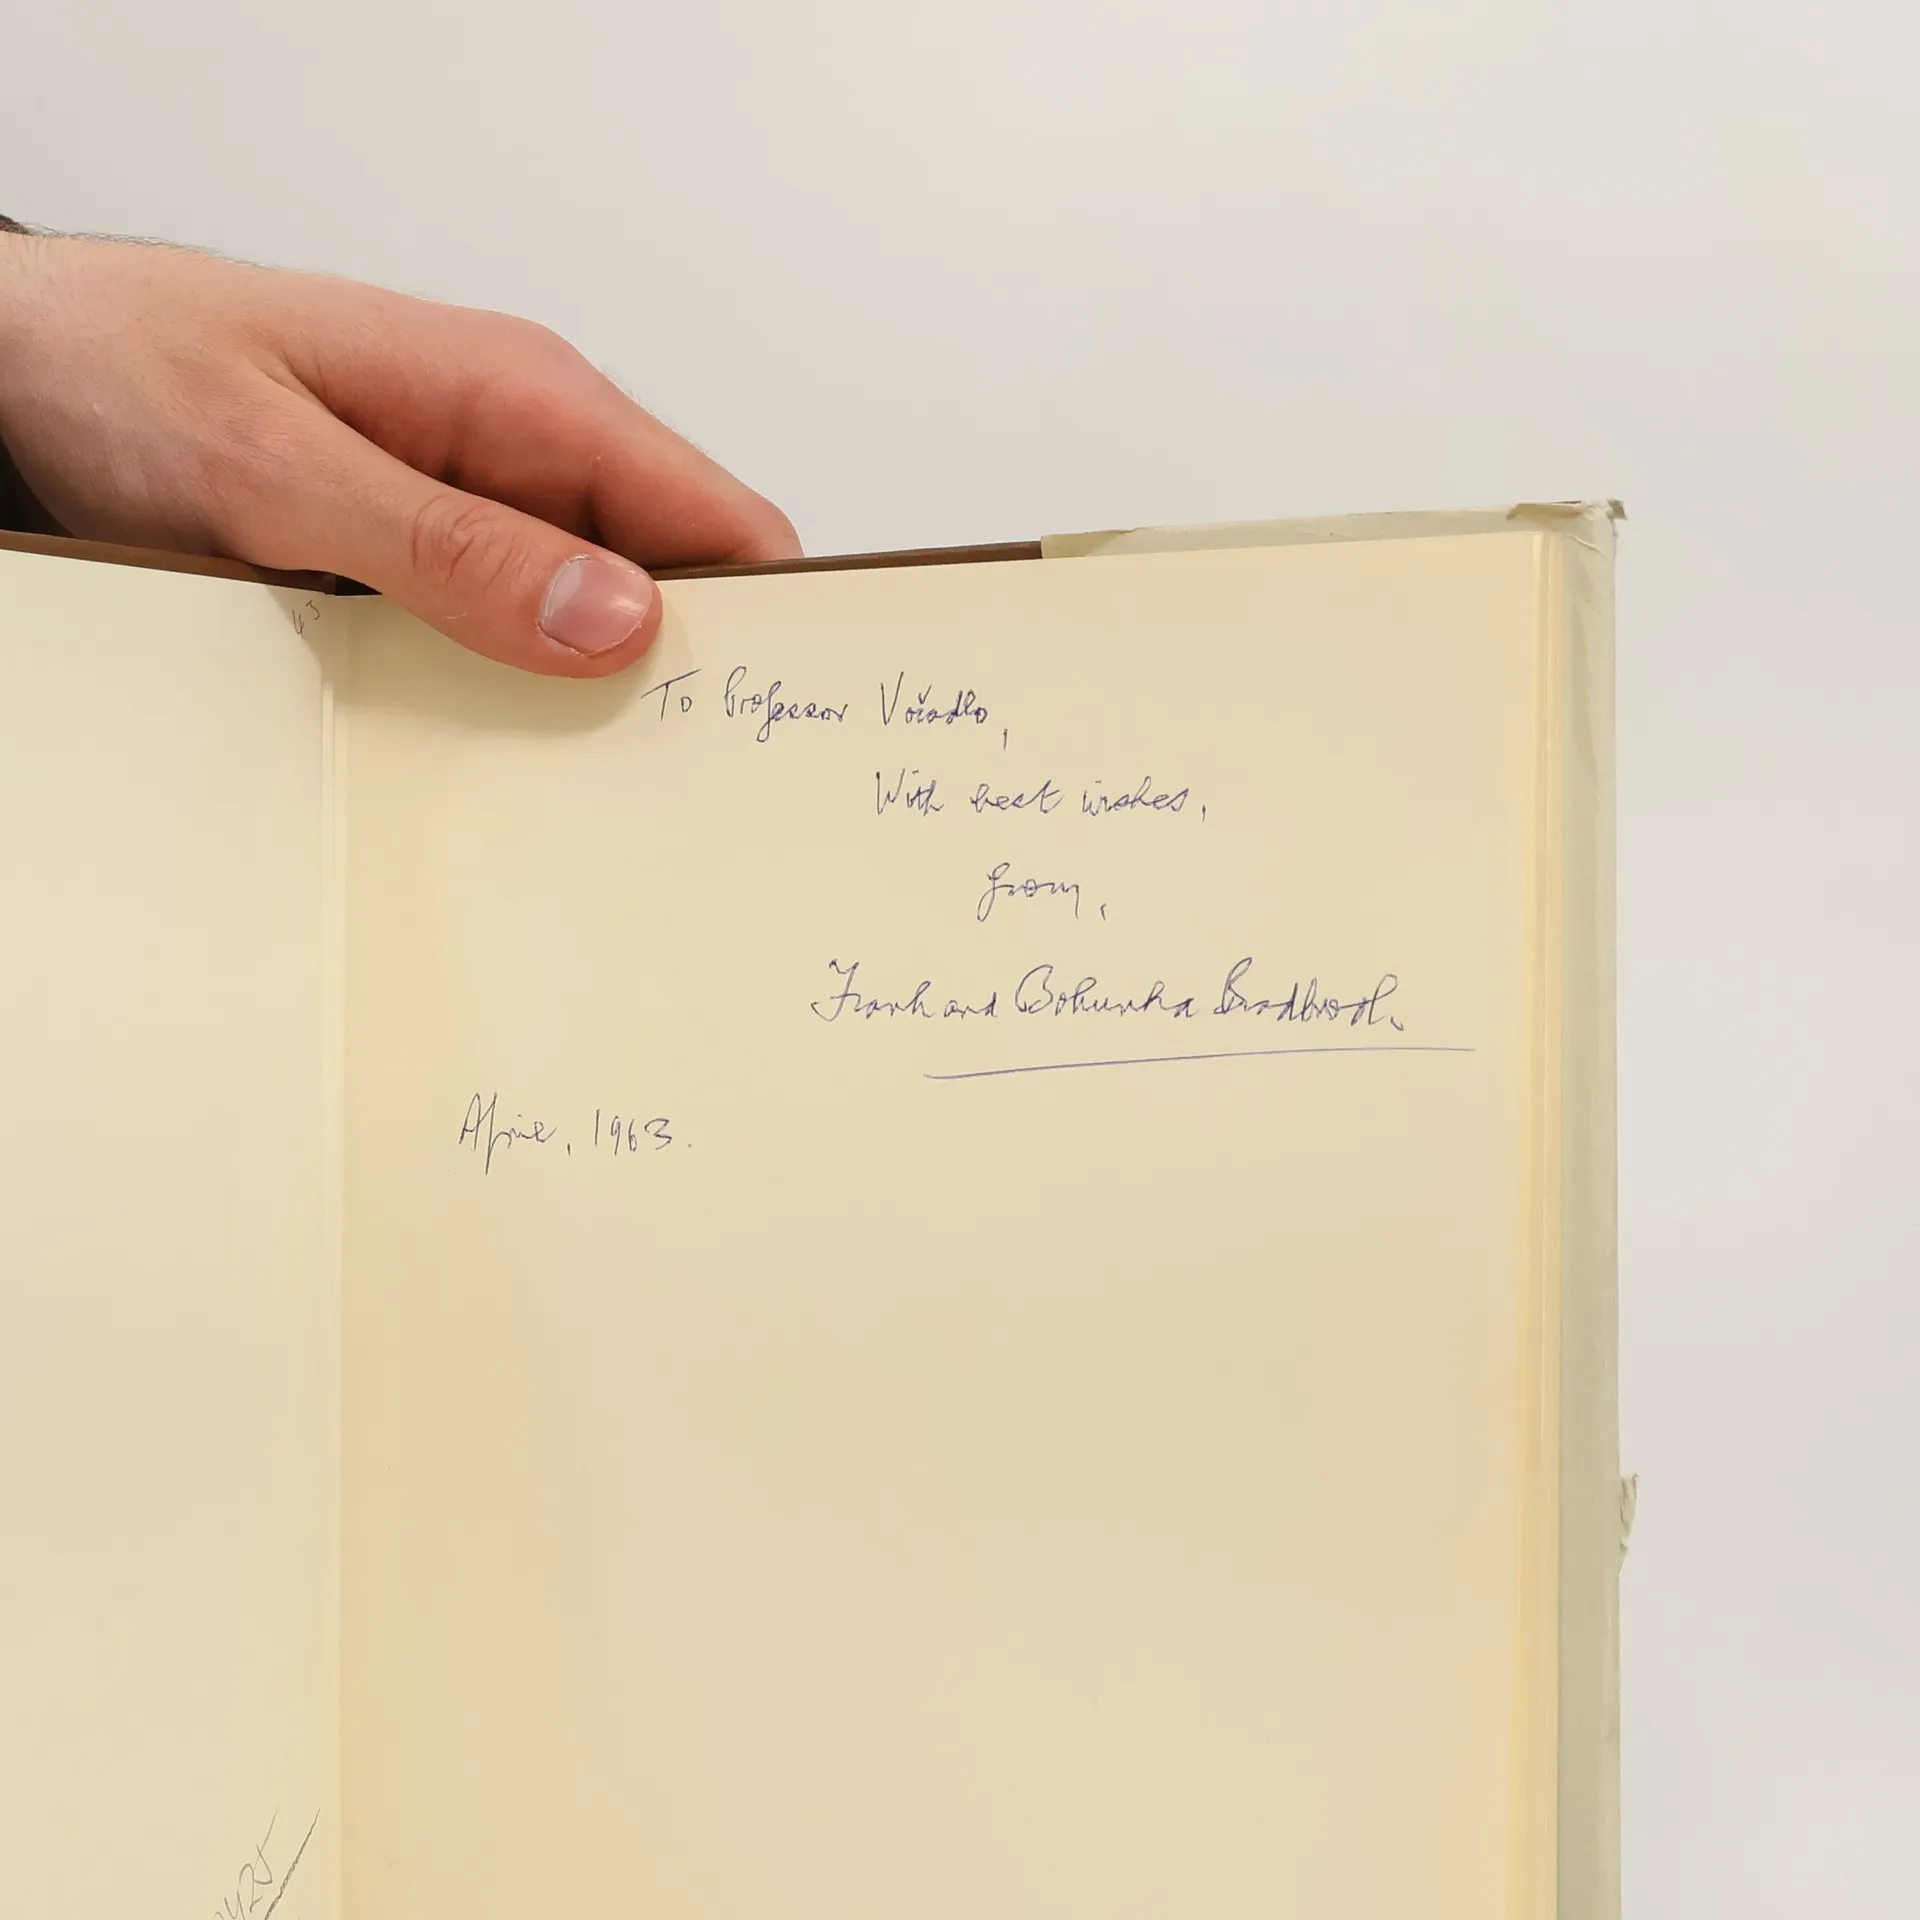 45
To Professor Vočadlo,
With best wishes,
from,
Frank and Bohunka Bradbrook.
April, 1963.